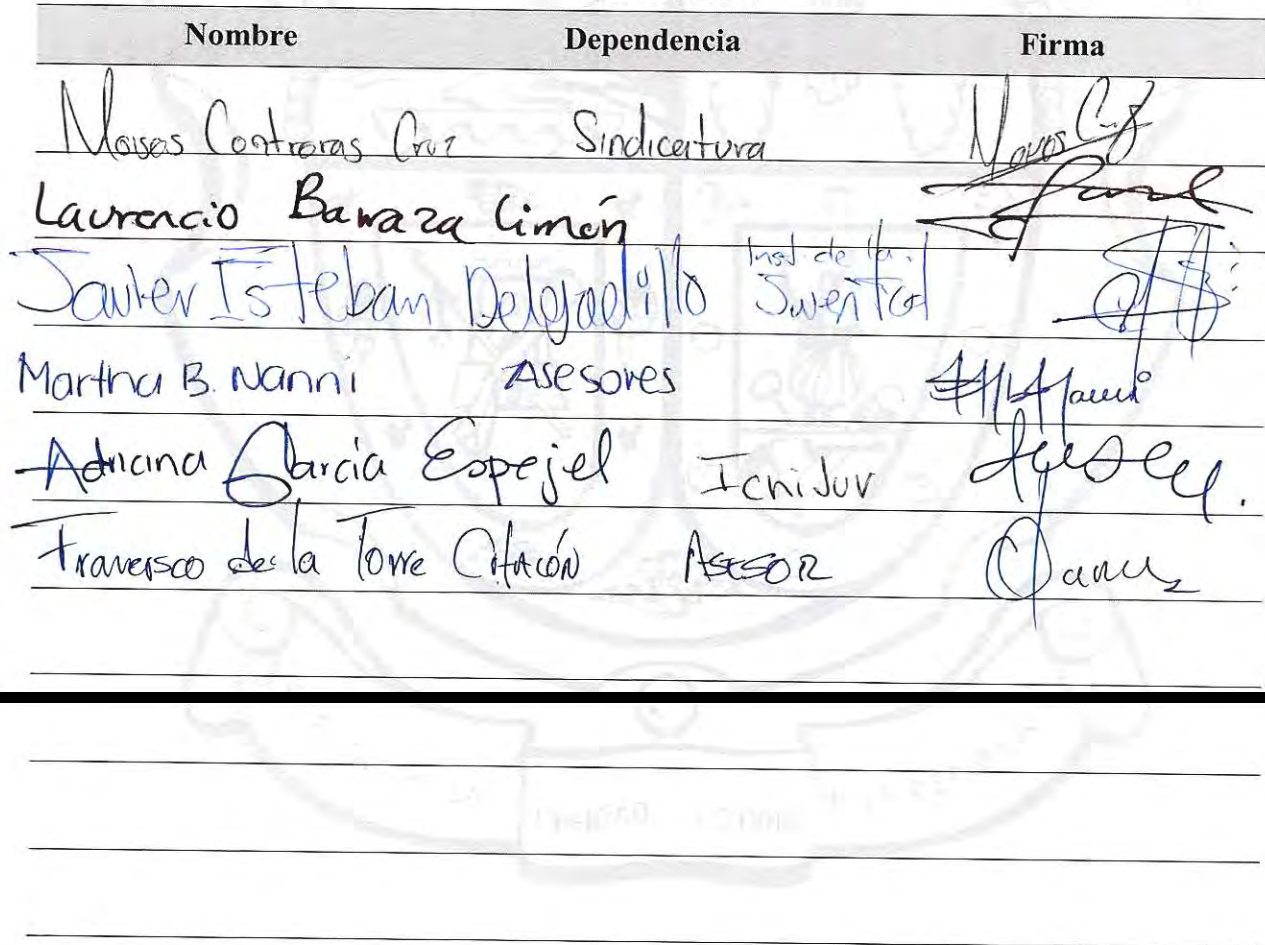 Nombre Dependencia Firma
Moises Contreras Cruz Sindicatura
Laurencio Barraza Limón
Javier Esteban Delgadillo Inst. de la Juventud
Martha B. Nanni Asesores
Adriana García Espejel Icnijuv
de la Torre ASESOR